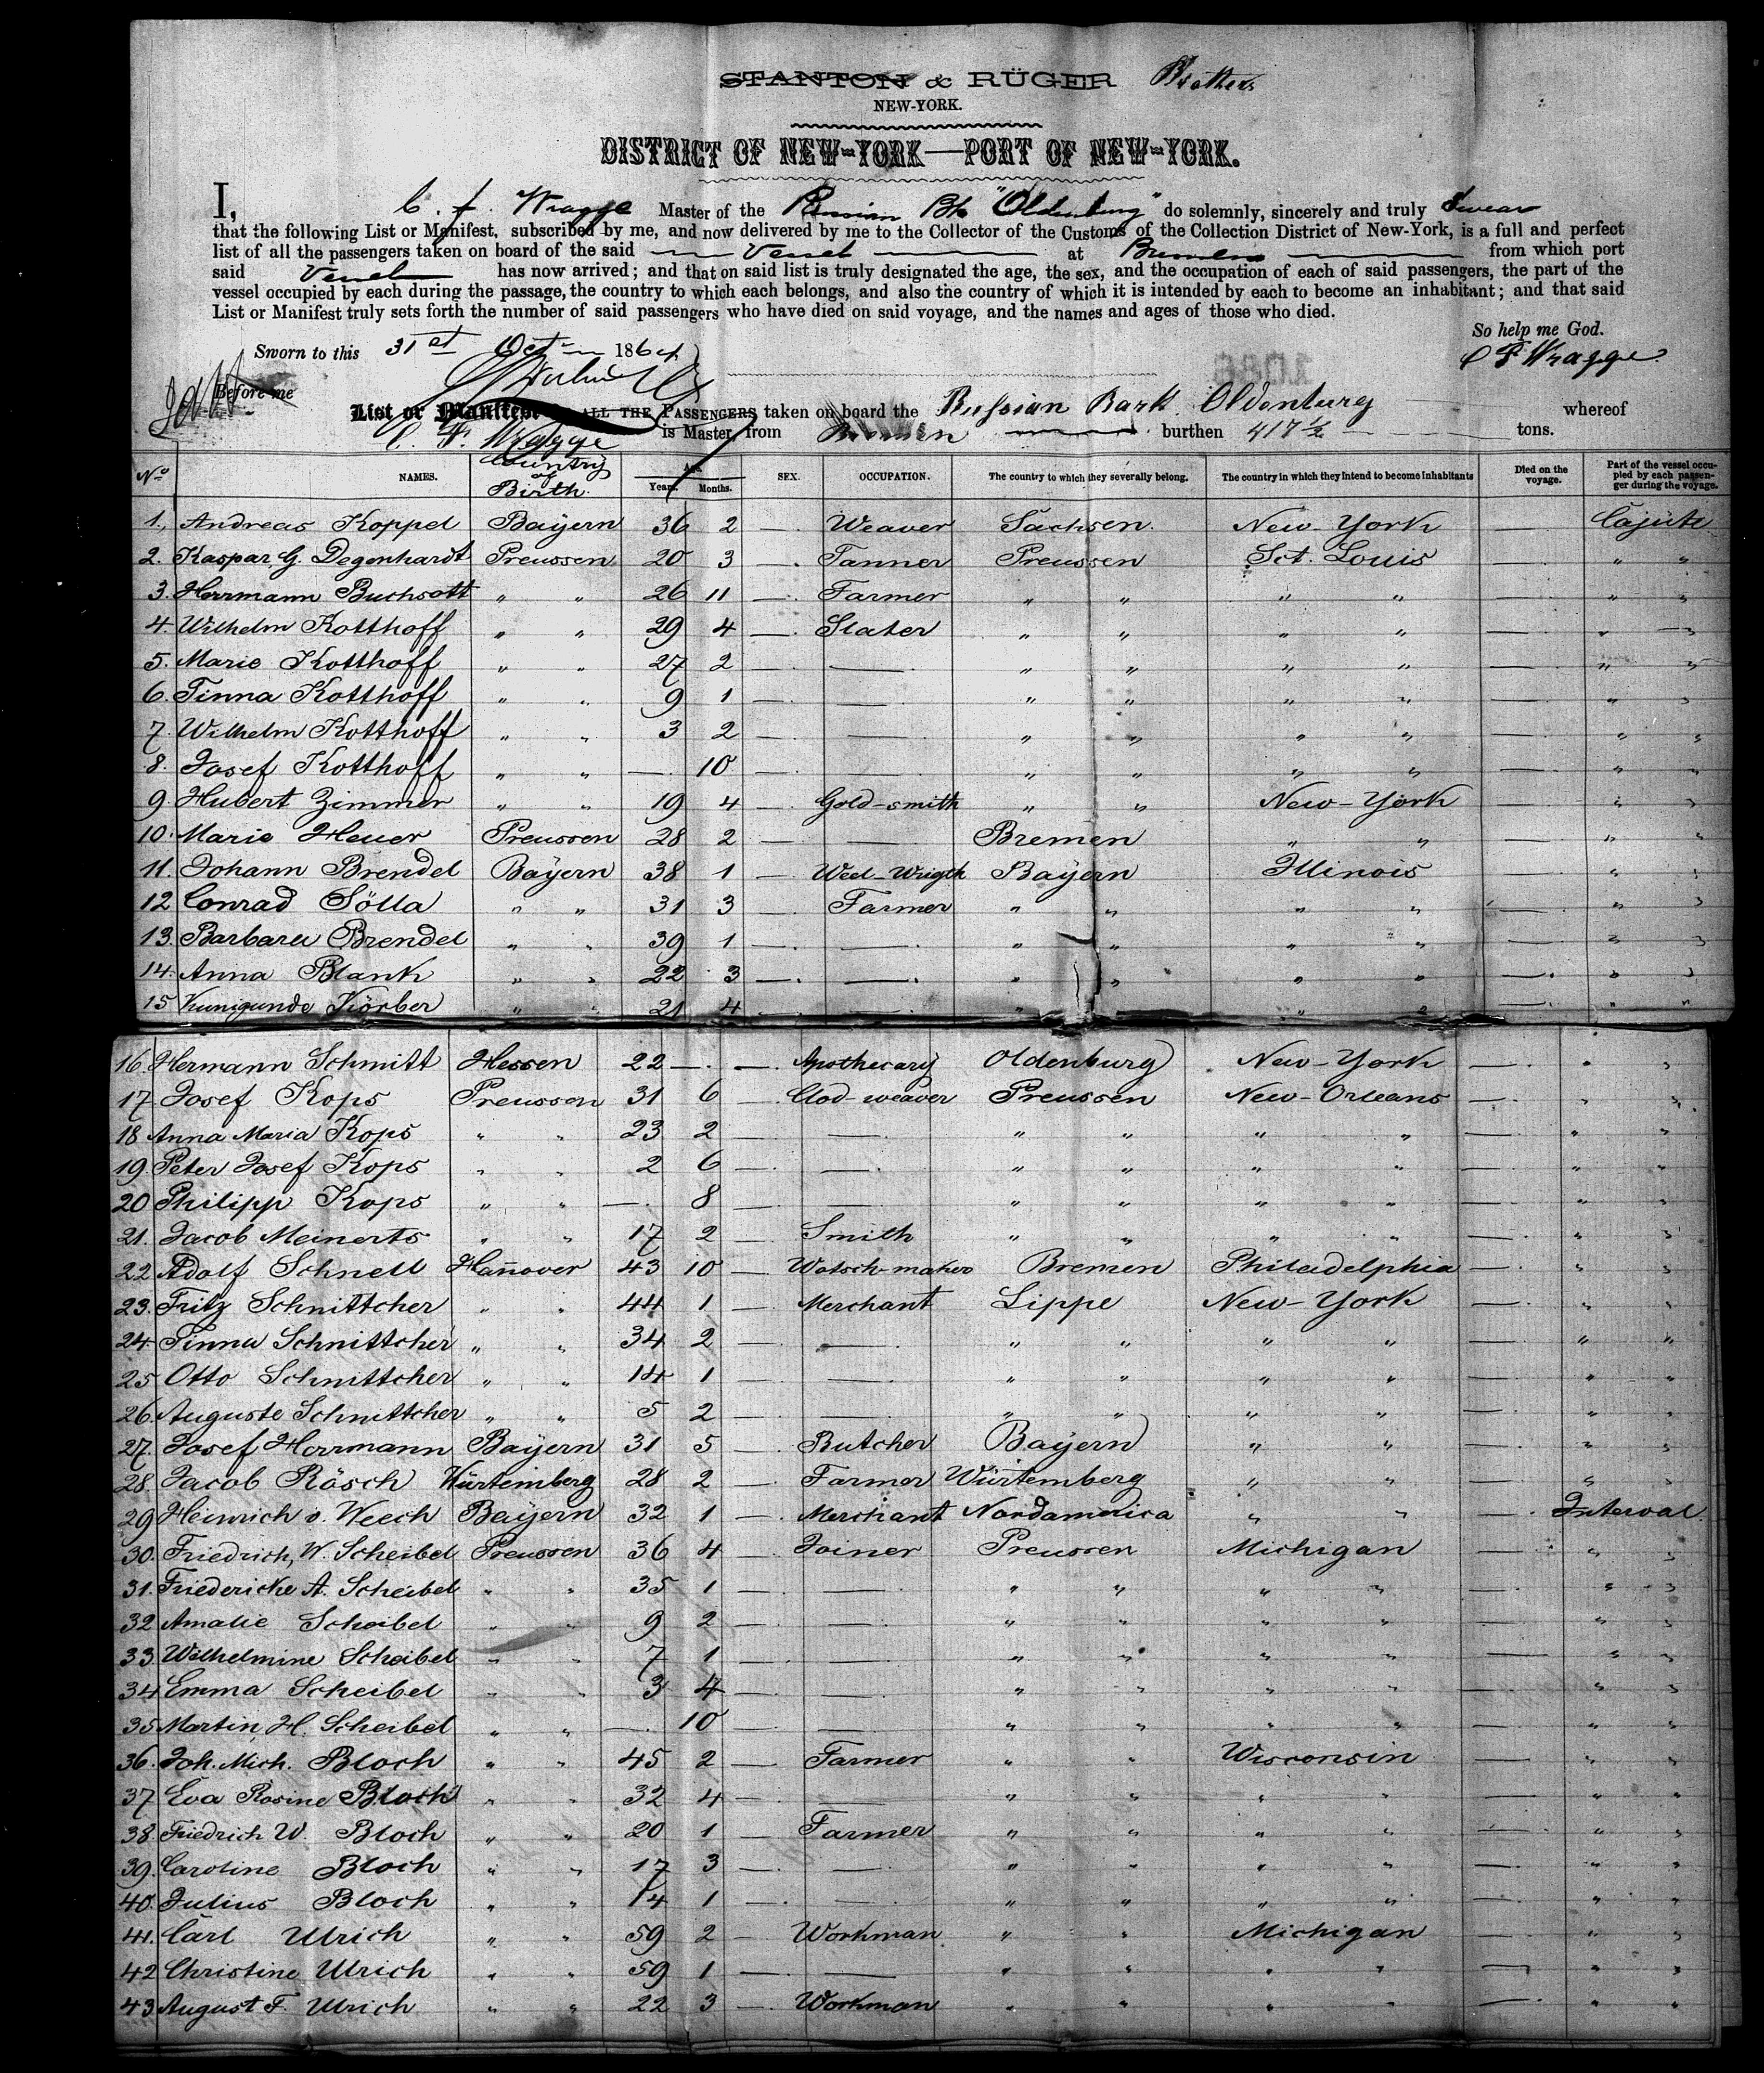 STANTON & RÜGER Brothers
NEW-YORK.
DISTRICT OF NEW-YORK—PORT OF NEW-YORK.
I, C. F. Wragge Master of the Russian Bk "Oldenburg" do solemnly, sincerely and truly swear
that the following List or Manifest, subscribed by me, and now delivered by me to the Collector of the Customs of the Collection District of New-York, is a full and perfect
list of all the passengers taken on board of the said Vessel at Bremen from which port
said Vessel has now arrived; and that on said list is truly designated the age, the sex, and the occupation of each of said passengers, the part of the
vessel occupied by each during the passage, the country to which each belongs, and also the country of which it is intended by each to become an inhabitant; and that said
List or Manifest truly sets forth the number of said passengers who have died on said voyage, and the names and ages of those who died.
So help me God.
Sworn to this 31st Oct 1864 C F Wragge
Before me
List or Manifest OF ALL THE PASSENGERS taken on board the Russian Bark Oldenburg whereof
C. F. Wragge is Master, from Bremen burthen 417 1/2 tons.
No NAMES. Country of Birth. AGE Years. Months. SEX. OCCUPATION. The country to which they severally belong. The country in which they intend to become inhabitants Died on the voyage. Part of the vessel occupied by each passenger during the voyage.
1. Andreas Koppel Bayern 36 2 — Weaver Sachsen. New-York — Cajüte
2. Kaspar G. Degenhardt Preussen 20 3 — Tanner Preussen Sct. Louis — " "
3. Herrmann Buchsott " " 26 11 — Farmer " " " " — " "
4. Wilhelm Kotthoff " " 29 4 — Slater " " " " — " "
5. Marie Kotthoff " " 27 2 — — " " " " — " "
6. Tinna Kotthoff " " 9 1 — — " " " " — " "
7. Wilhelm Kotthoff " " 3 2 — — " " " " — " "
8. Josef Kotthoff " " — 10 — — " " " " — " "
9. Hubert Zimmer " " 19 4 — Gold-smith " " New-York — " "
10. Marie Heuer Preussen 28 2 — — Bremen " " — " "
11. Johann Brendel Bayern 38 1 — Weel-Wrigth Bayern Illinois — " "
12 Conrad Sölla " " 31 3 — Farmer " " " " — " "
13. Barbara Brendel " " 39 1 — — " " " " — " "
14. Anna Blank " " 22 3 — — " " " " — " "
15 Kunigunde Körber " " 21 4 — — " " " " — " "
16. Hermann Schmitt Hessen 22 — — Apothecary Oldenburg New-York — " "
17 Josef Kops Preussen 31 6 — Clod-weaver Preussen New-Orleans — " "
18 Anna Maria Kops " " 23 2 — — " " " " — " "
19. Peter Josef Kops " " 2 6 — — " " " " — " "
20 Philipp Kops " " — 8 — — " " " " — " "
21. Jacob Meinerts " " 17 2 — Smith " " " " — " "
22 Adolf Schnell Hannover 43 10 — Watsch-maker Bremen Philadelphia — " "
23. Fritz Schnittcher " " 44 1 — Merchant Lippe New-York — " "
24. Tinna Schnittcher " " 34 2 — — " " " " — " "
25 Otto Schnittcher " " 14 1 — — " " " " — " "
26. Auguste Schnittcher " " 5 2 — — " " " " — " "
27. Josef Herrmann Bayern 31 5 — Butcher Bayern " " — " "
28. Jacob Rösch Würtemberg 28 2 — Farmer Würtemberg " " — " "
29 Heinrich v. Weech Bayern 32 1 — Merchant Nordamerica " " — Interval
30. Friedrich W. Scheibel Preussen 36 4 — Joiner Preussen Michigan — " "
31. Friedericke A. Scheibel " " 35 1 — — " " " " — " "
32 Amalie Scheibel " " 9 2 — — " " " " — " "
33 Wilhelmine Scheibel " " 7 1 — — " " " " — " "
34 Emma Scheibel " " 3 4 — — " " " " — " "
35 Martin H. Scheibel " " — 10 — — " " " " — " "
36. Joh. Mich. Bloch " " 45 2 — Farmer " " Wisconsin — " "
37 Eva Rosine Bloch " " 32 4 — — " " " " — " "
38. Friedrich W. Bloch " " 20 1 — Farmer " " " " — " "
39. Caroline Bloch " " 17 3 — — " " " " — " "
40. Julius Bloch " " 14 1 — — " " " " — " "
41. Carl Ulrich " " 59 2 — Workman " " Michigan — " "
42 Christine Ulrich " " 59 1 — — " " " " — " "
43 August F. Ulrich " " 22 3 — Workman " " " " — " "